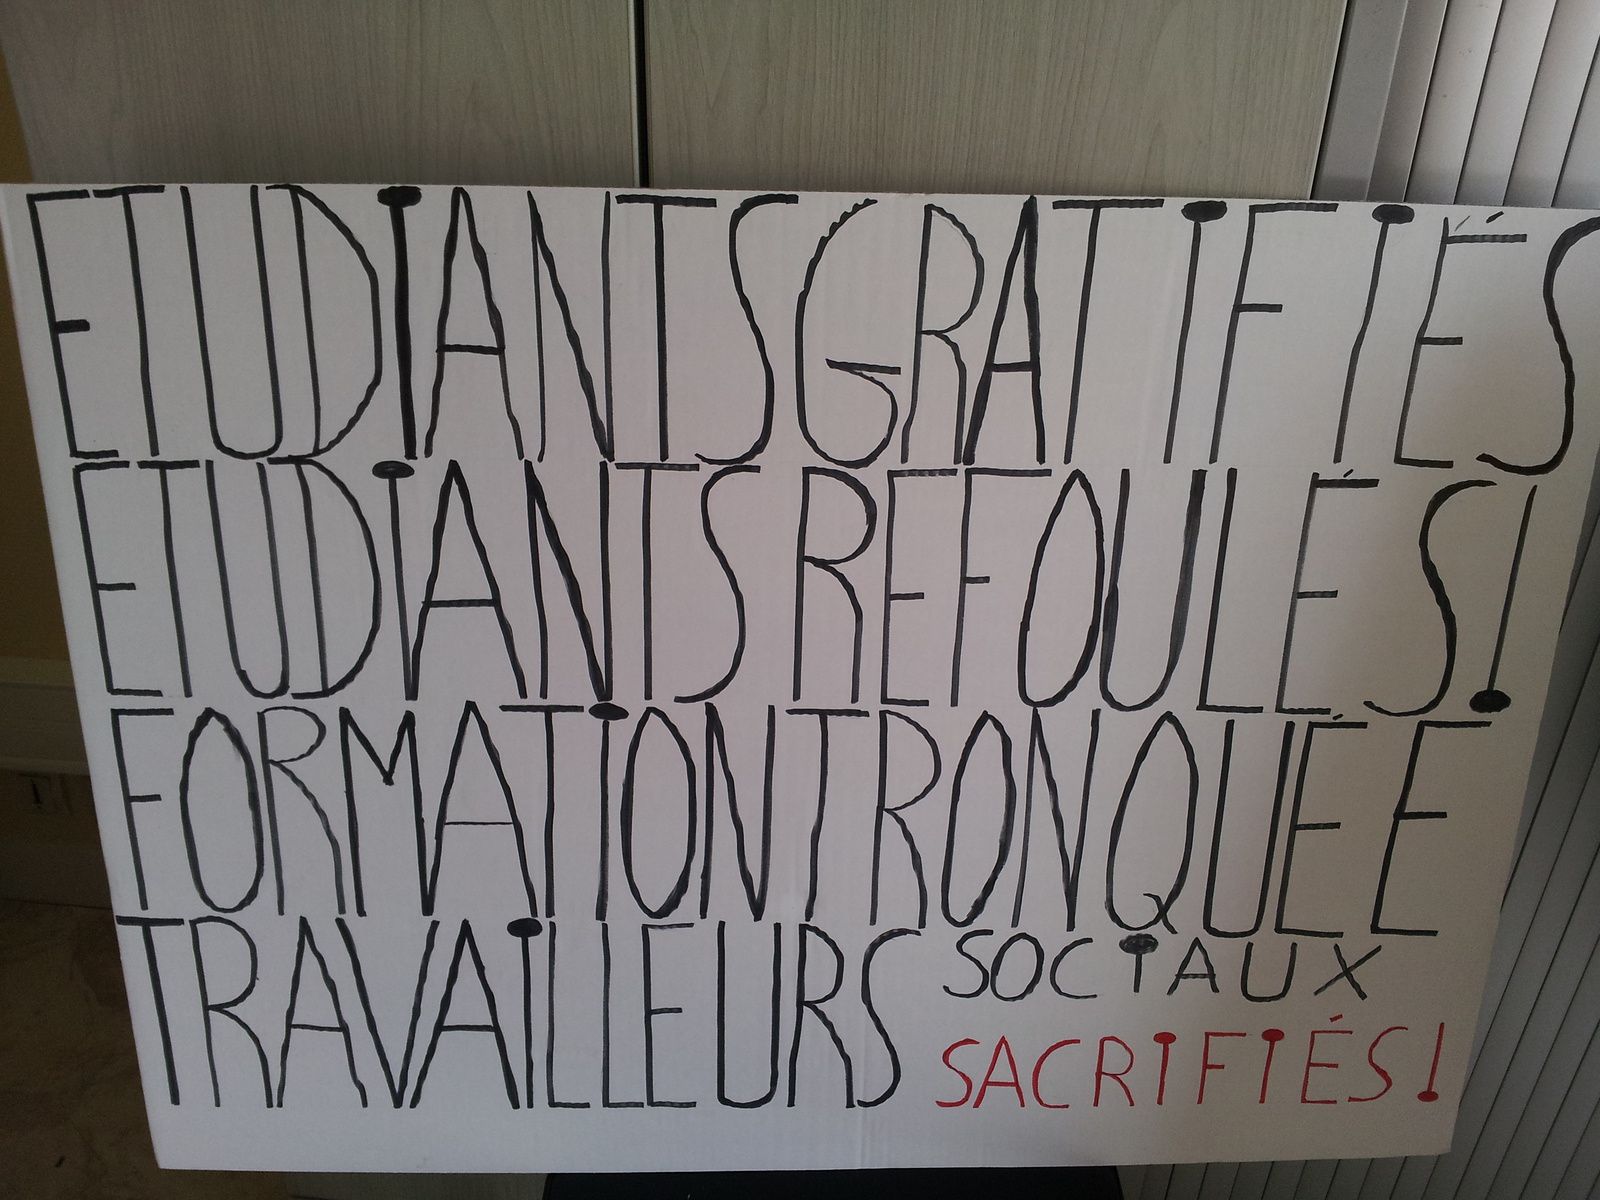 ETUDIANTS GRATIFIÉS
ETUDIANTS REFOULÉS!
FORMATION TRONQUÉE
TRAVAILLEURS SOCIAUX
SACRIFIÉS!